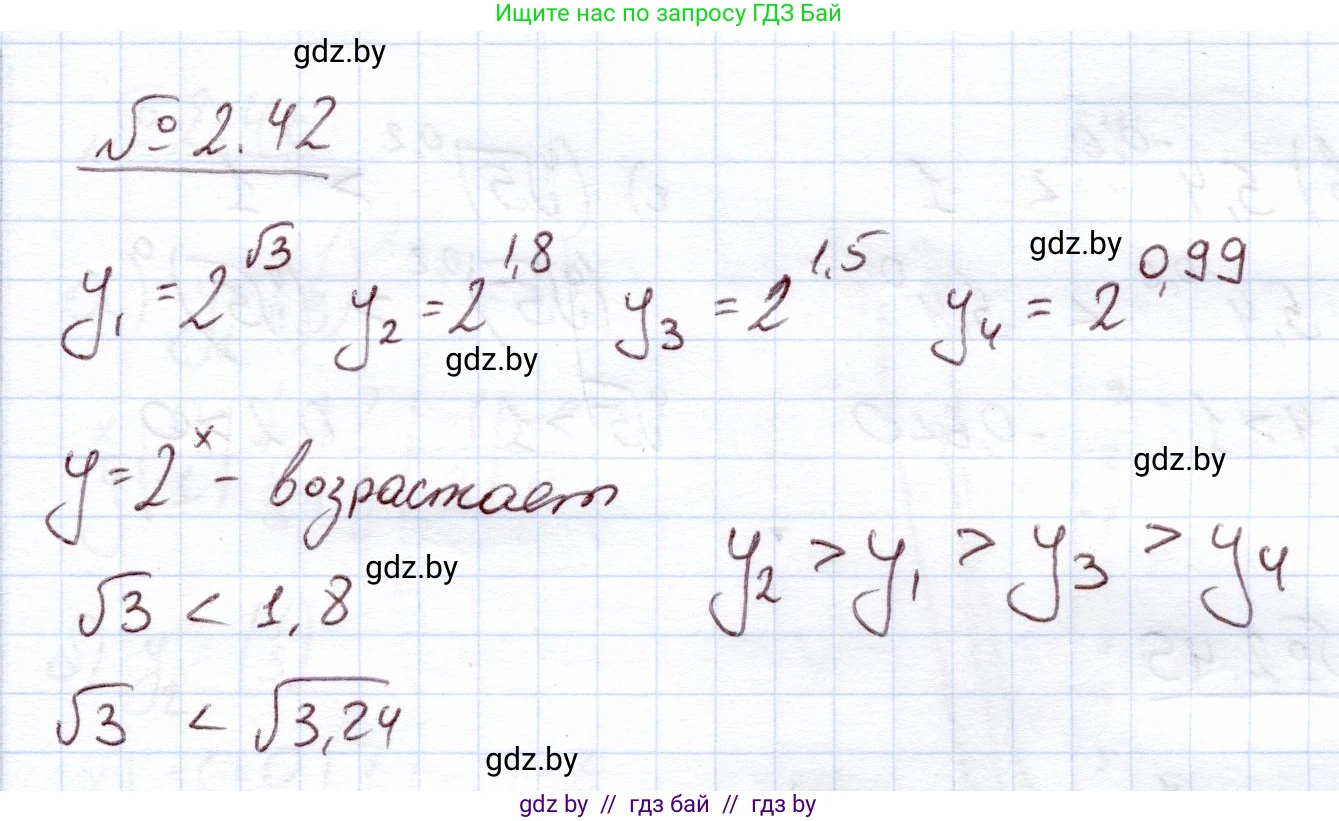 Ищите нас по запросу ГДЗ Бай
gdz.by
№ 2.42
gdz.by
y₁ = 2^√3 y₂ = 2^1,8 y₃ = 2^1,5 y₄ = 2^0,99
gdz.by
y = 2^x - возрастает
gdz.by
y₂ > y₁ > y₃ > y₄
gdz.by
√3 < 1,8
√3 < √3,24
gdz.by
gdz by // гдз бай // гдз by